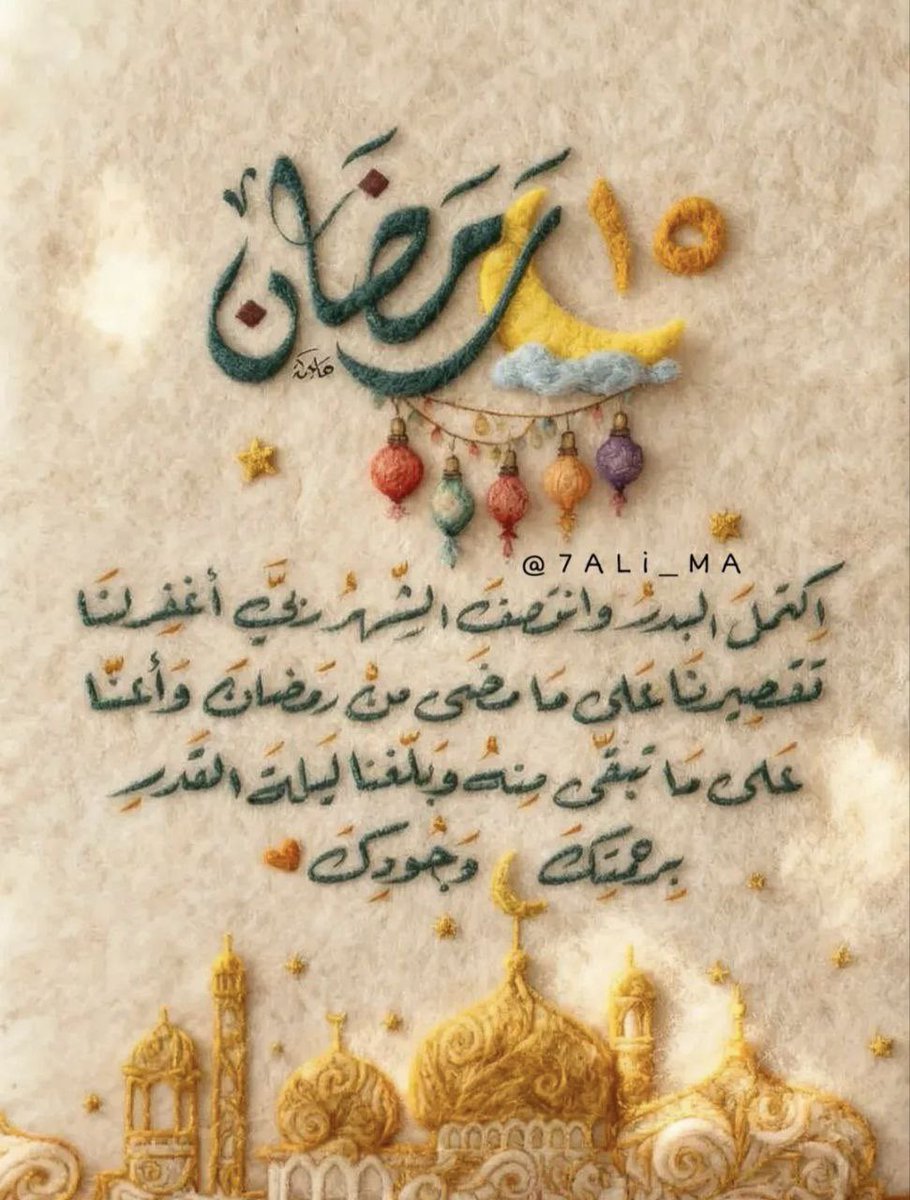 ١٥ رَمَضَان
@7ALi_MA
اِكتملَ البدرُ وانتصفَ الشّهرُ ربَّي أغفِرلنَا
تَقصِيرنَا عَلى مَا مضَى منْ رَمضانَ وَأعنّا
عَلى مَا تبقّى مِنهُ وَبَلّغنا لَيلةَ القَدرِ
بِرحمتِكَ وَجُودِكَ